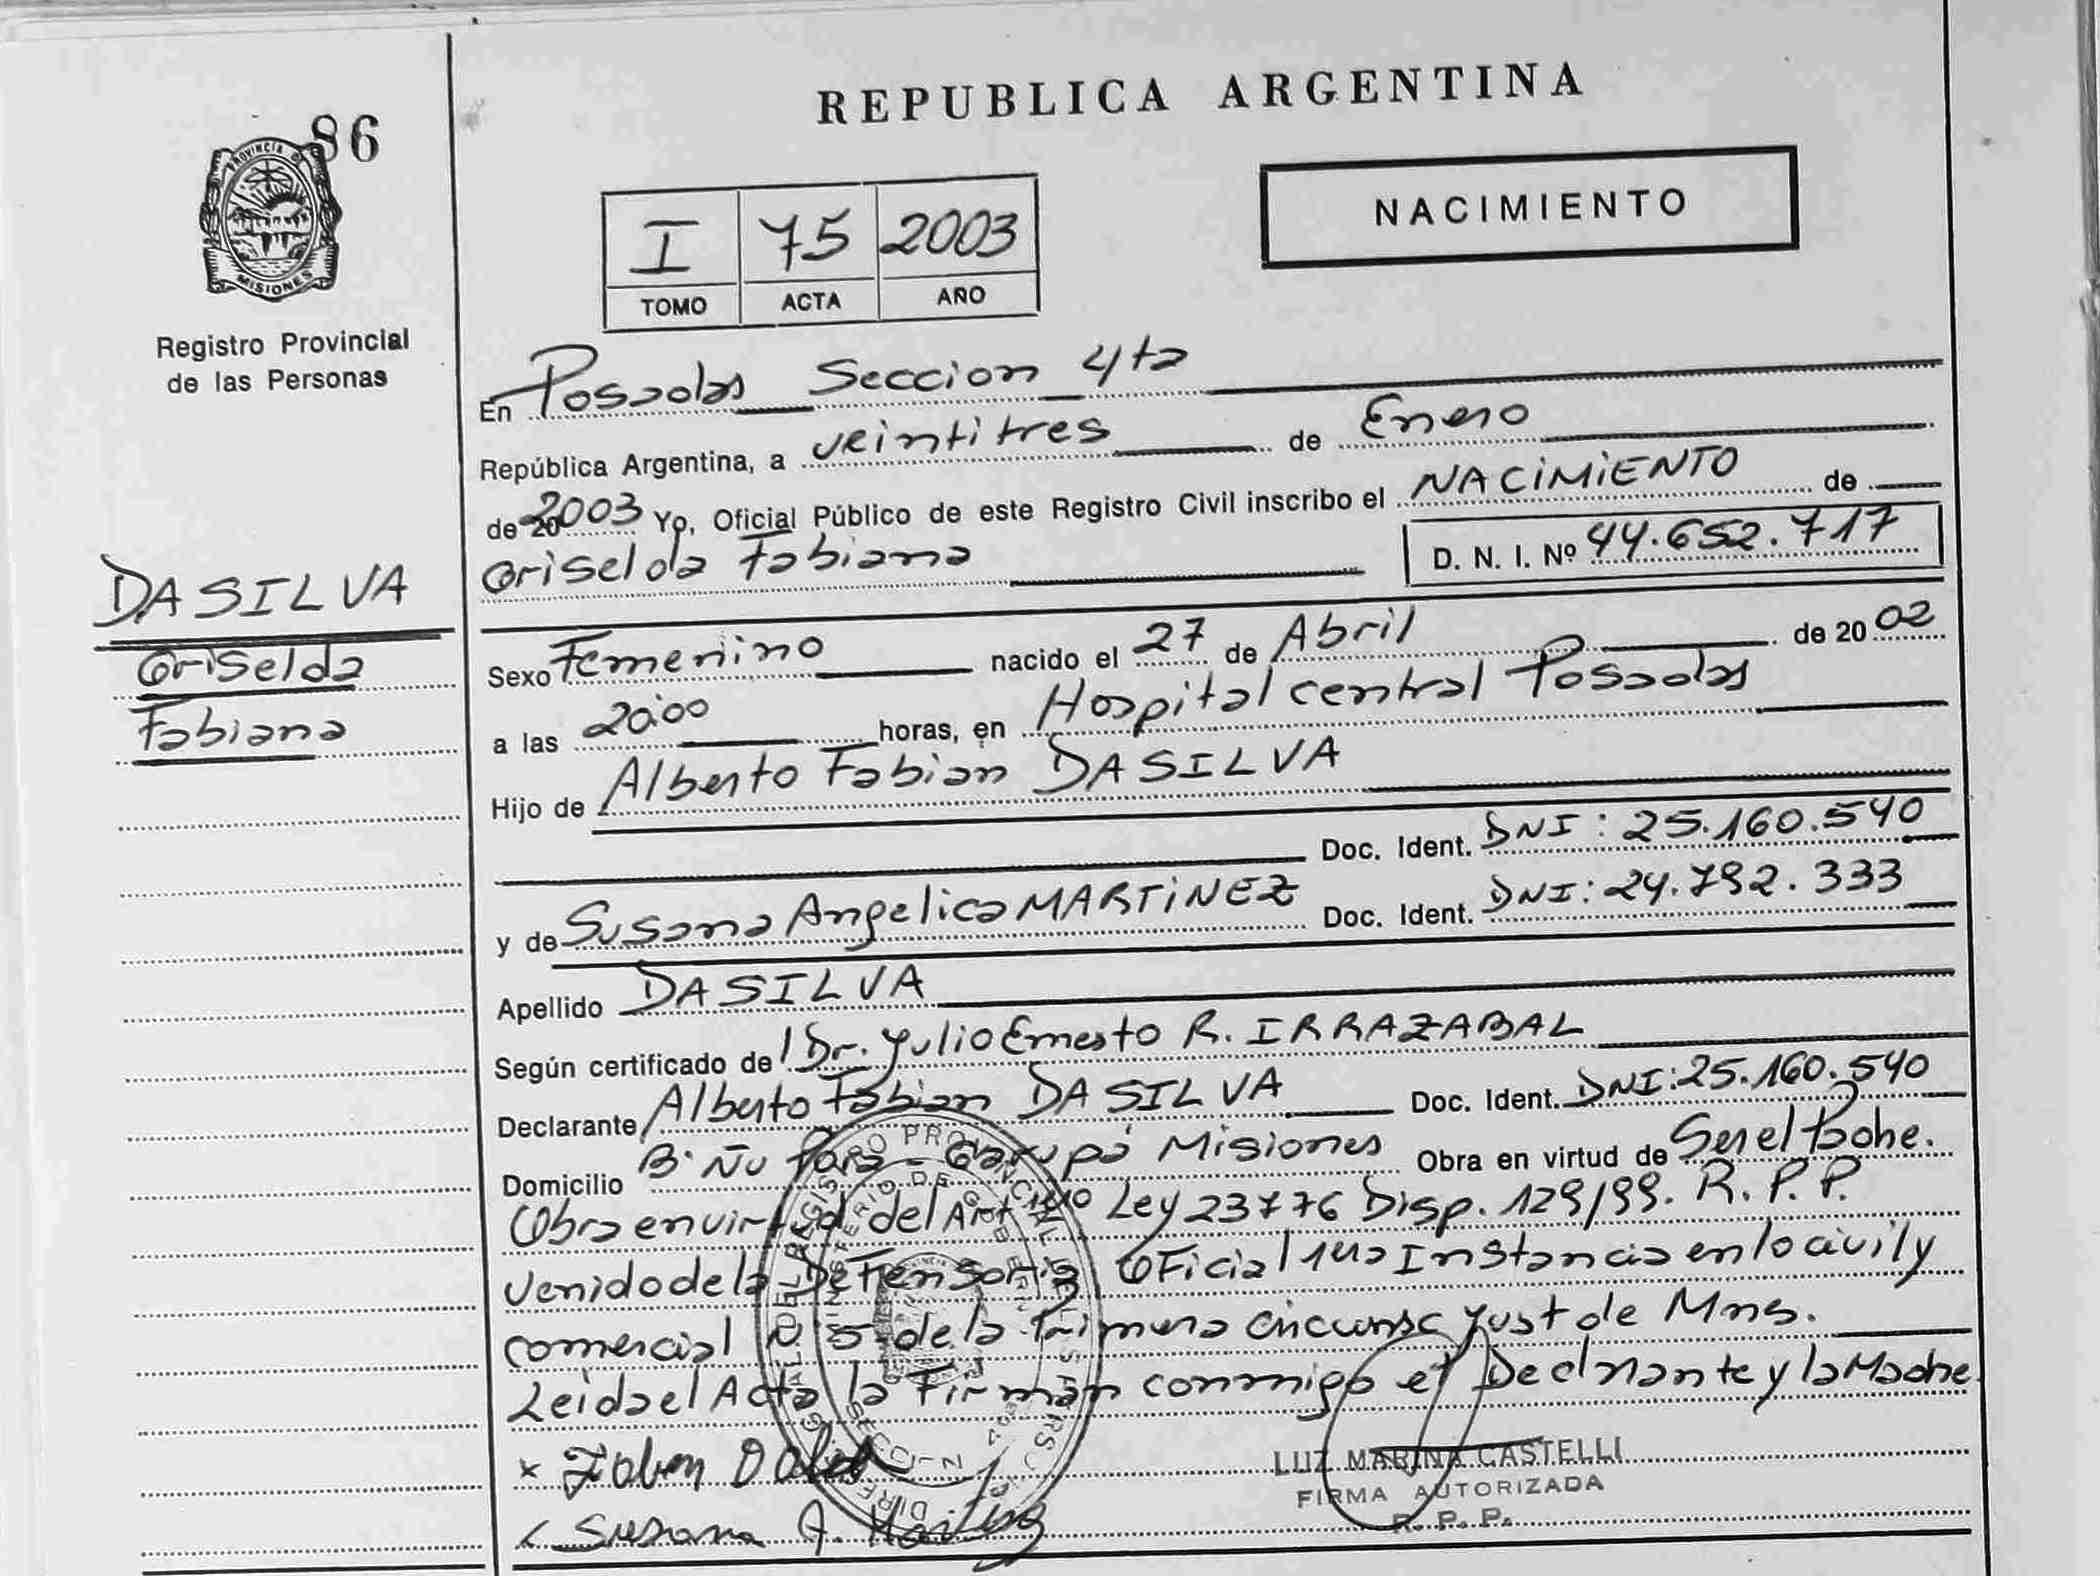 REPUBLICA ARGENTINA
86
PROVINCIA DE
MISIONES
Registro Provincial
de las Personas
NACIMIENTO
I 75 2003
TOMO ACTA AÑO
En Posadas Seccion 4ta
República Argentina, a veintitres de Enero
de 20 2003 Yo, Oficial Público de este Registro Civil inscribo el NACIMIENTO de
Griselda Fabiana D. N. I. Nº 44.652.717
DASILVA
Griselda
Fabiana
Sexo Femenino nacido el 27 de Abril de 20 02
a las 20:00 horas, en Hospital central Posadas
Hijo de Alberto Fabian DASILVA
Doc. Ident. DNI: 25.160.540
y de Susana Angelica MARTINEZ Doc. Ident. DNI: 24.792.333
Apellido DASILVA
Según certificado de Dr. Julio Ernesto R. IRRAZABAL
Declarante Alberto Fabian DASILVA Doc. Ident. DNI: 25.160.540
Domicilio B· Ñu Pora - Garupá Misiones Obra en virtud de Ser el Padre.
Obra en virtud del Art Ley 23776 Disp. 129/99. R. P. P.
venido de la Defensoria Oficial 1era Instancia en lo civil y
comercial Nº 5 de la Primera circunsc Just de Mns.
Leida el Acta la Firman conmigo el Declarante y la Madre
x Fabian
Susana A. Martinez
LUZ MARINA CASTELLI
FIRMA AUTORIZADA
R. P. P.